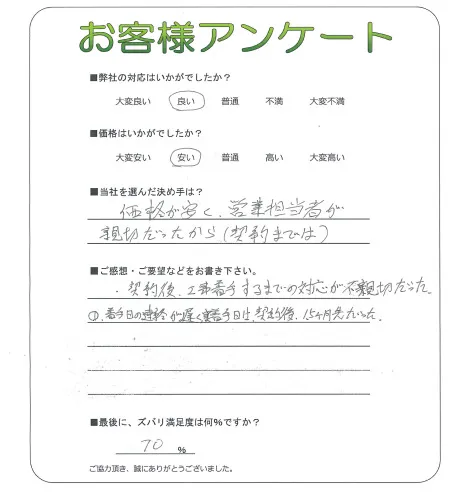 お客様アンケート
■弊社の対応はいかがでしたか？
大変良い 良い 普通 不満 大変不満
■価格はいかがでしたか？
大変安い 安い 普通 高い 大変高い
■当社を選んだ決め手は？
価格が安く、営業担当者が
親切だったから（契約までは）
■ご感想・ご要望などをお書き下さい。
・契約後、工事着手するまでの対応が不親切だった。
①着手日の連絡が遅く 着手日は、契約後、1.5ヶ月先だった。
■最後に、ズバリ満足度は何％ですか？
70 ％
ご協力頂き、誠にありがとうございました。